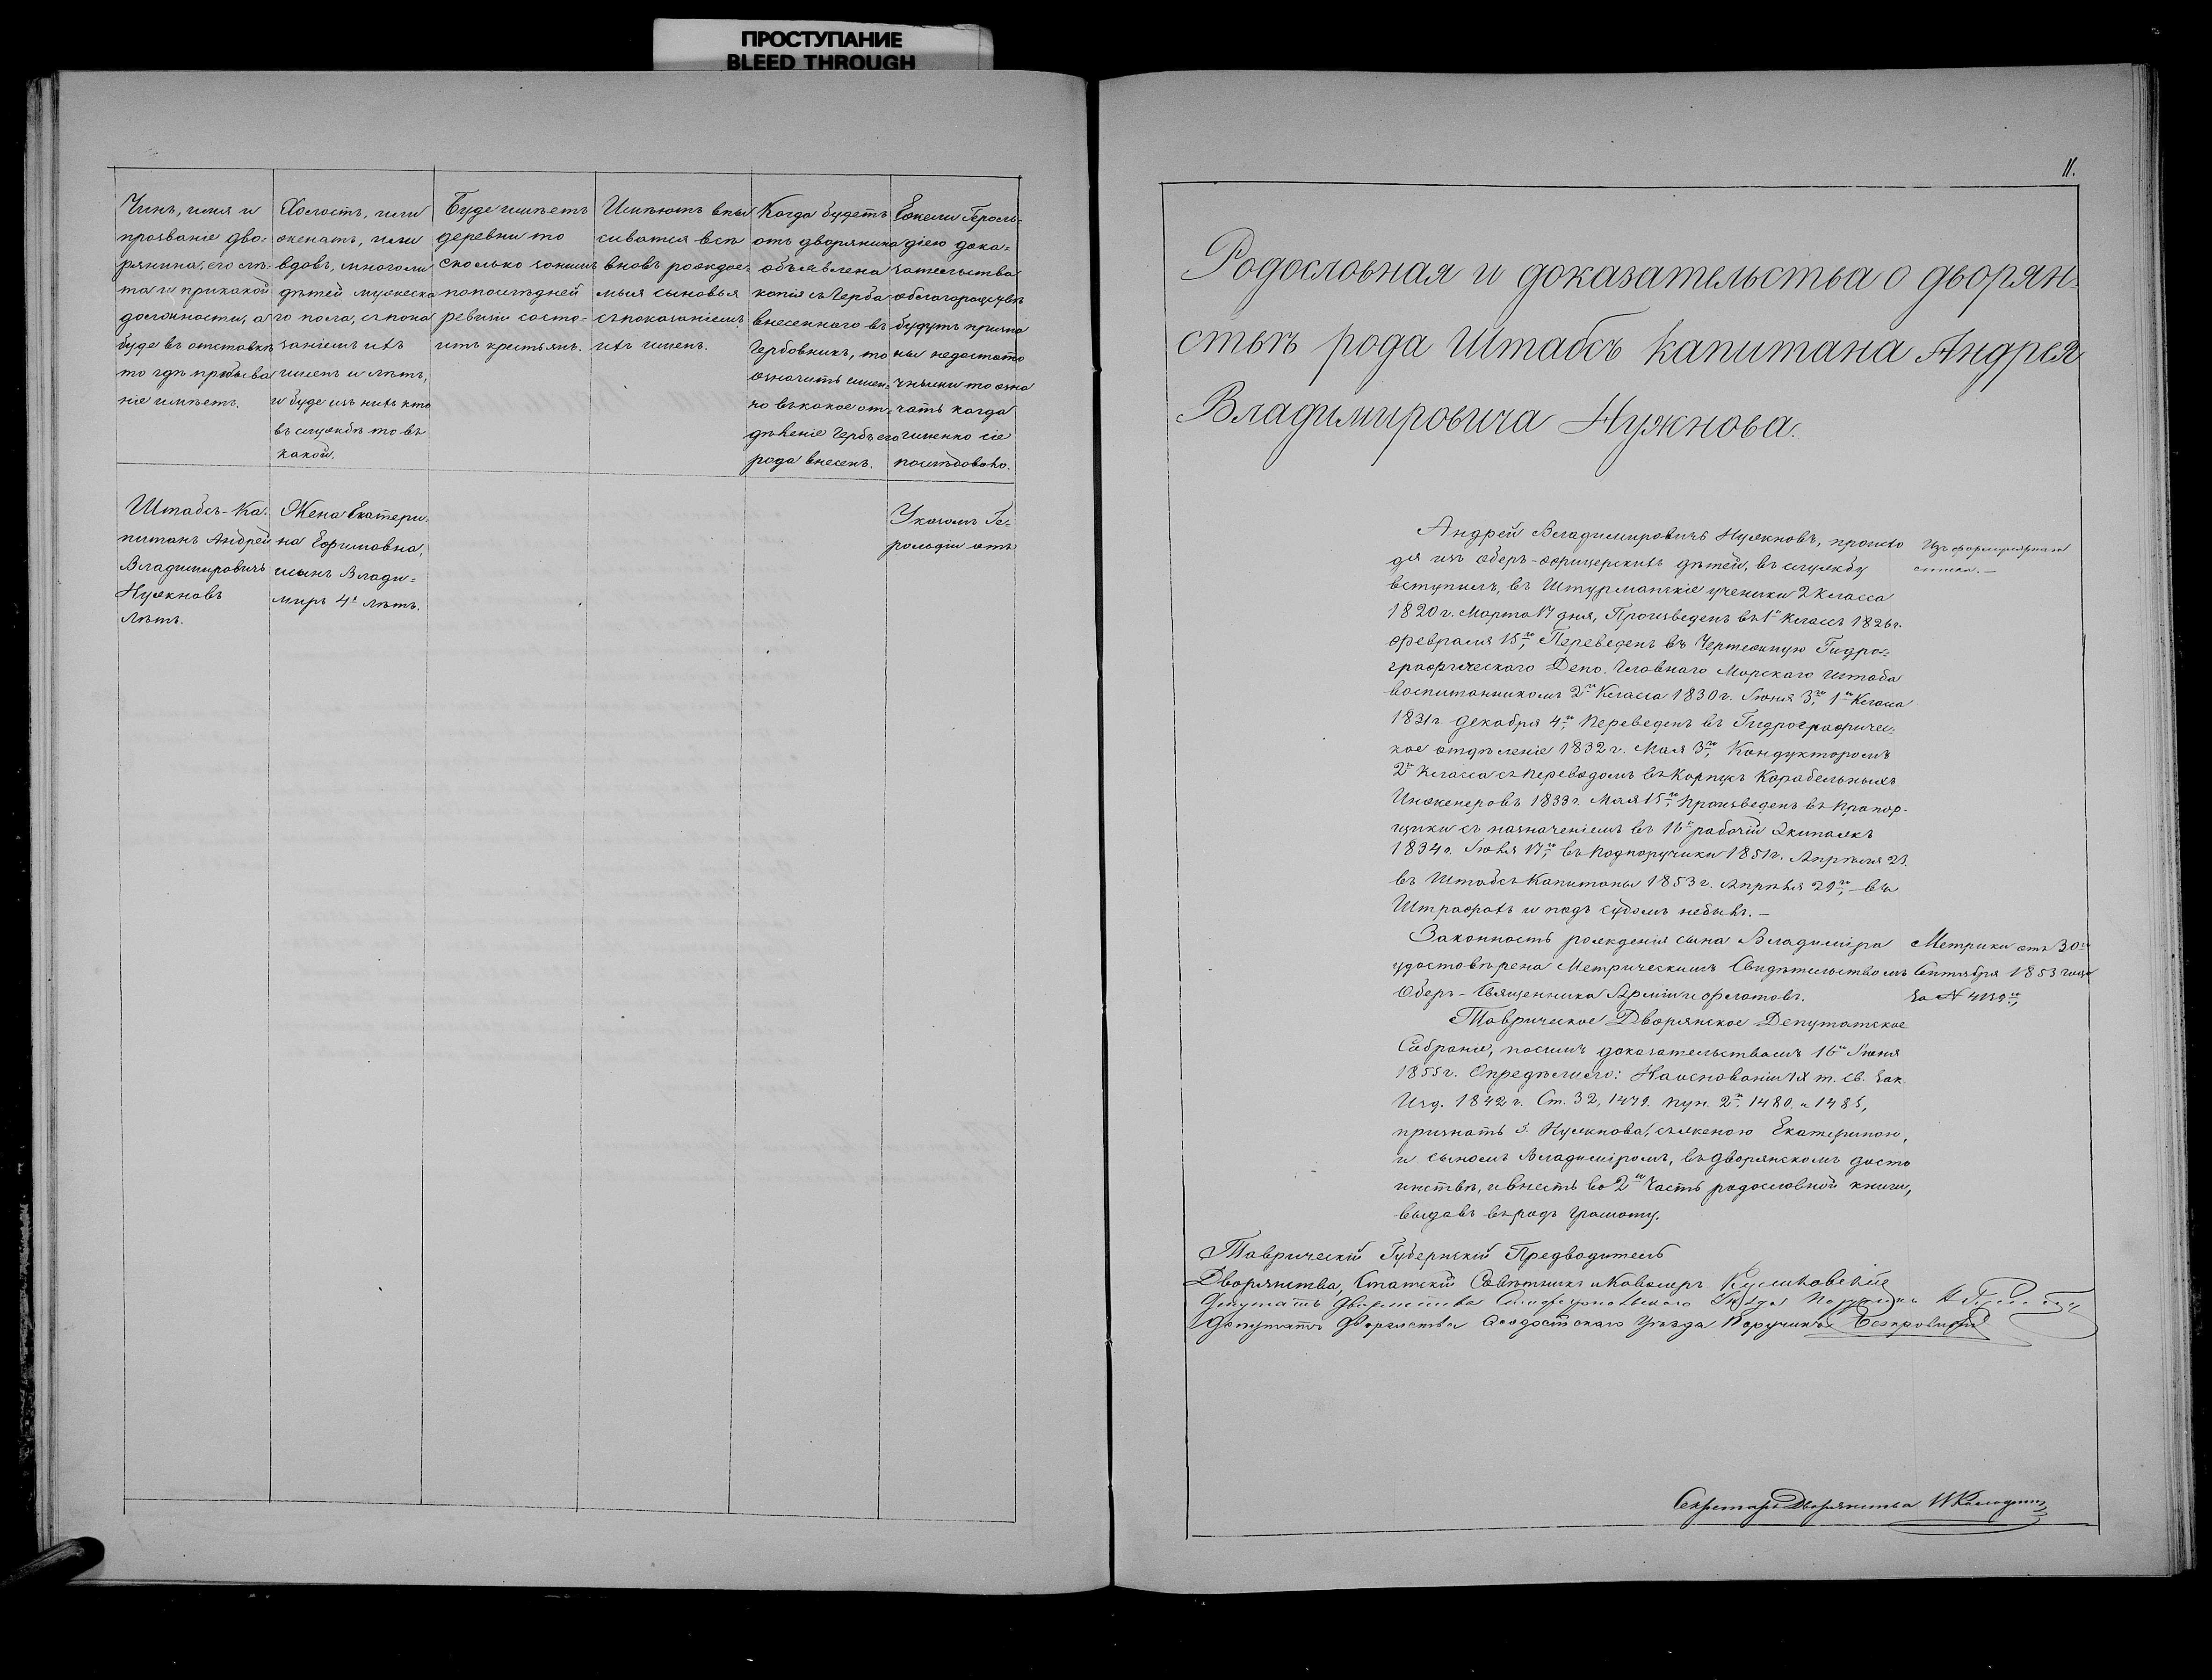 ПРОСТУПАНИЕ
BLEED THROUGH
Чинъ, имя и
прозваніе дво-
рянина, его лѣ-
та и при какой
должности, а
буде въ отставкѣ
то гдѣ пребыва
ніе имѣетъ.
Холостъ, или
женатъ, или
вдовъ, много ли
дѣтей мужеска
го пола, съ пока
заніемъ ихъ
именъ и лѣтъ,
и буде изъ нихъ кто
въ службѣ то въ
какой.
Буде имѣетъ
деревни то
сколько за нимъ
по послѣдней
ревизіи состо-
итъ крестьянъ.
Имѣютъ впи
сыватся всѣ
вновь рождае-
мыя сыновья
съ показаніемъ
ихъ именъ.
Когда будетъ
отъ дворянина
объявлена
копія съ Герба
внесеннаго въ
Гербовникъ, то
означить имен-
но въ какое от-
дѣленіе Гербъ его
рода внесенъ.
Ежели Героль-
діею дока-
зательства
о благородствѣ
будутъ призна
ны недостато
чными то озна
чать когда
именно сіе
послѣдовало.
Штабсъ-Ка-
питанъ Андрей
Владимировичъ
Нужновъ
лѣтъ.
Жена Екатери-
на Ефимовна,
сынъ Влади-
миръ 4х лѣтъ.
Указомъ Ге-
рольдіи отъ
11.
Родословная и доказательства о дворян-
ствѣ рода Штабсъ капитана Андрея
Владимировича Нужнова.
Андрей Владимировичъ Нужновъ, происхо
дя изъ оберъ-офицерскихъ дѣтей, въ службу
вступилъ, въ Штурманскіе ученики 2 класса
1820 г. Марта 17 дня, Произведенъ въ 1й классъ 1826 г.
февраля 15го, Переведенъ въ Чертежную Гидро-
графическаго Депо. Главнаго Морскаго Штаба
воспитанникомъ 2го Класса 1830 г. Іюня 3го, 1го Класса
1831 г. Декабря 4го, Переведенъ въ Гидрографичес-
кое отдѣленіе 1832 г. Мая 3го, Кондукторомъ
2го Класса съ переводомъ въ Корпусъ Корабельныхъ
Инженеровъ 1833 г. Мая 15го, Произведенъ въ Прапор-
щики съ назначеніемъ въ 16й рабочій Экипажъ
1834 г. Іюля 17го, въ Подпоручики 1851 г. Апрѣля 23.
въ Штабсъ Капитаны 1853 г. Апрѣля 29го,— въ
Штрафахъ и подъ судомъ небылъ.—
Изъ формулярнаго
списка.—
Законность рожденія сына Владиміра
удостовѣрена Метрическимъ Свидѣтельствомъ
Оберъ-Священника Арміи и флотовъ.
Метрики отъ 30го
Сентября 1853 года
за № 4139м,
Таврическое Дворянское Депутатское
Собраніе, по симъ доказательствамъ 16го Іюня
1855 г. Опредѣлило: На основаніи IX т. Св. Зак.
Изд. 1842 г. Ст. 32, 1479. пун. 2го, 1480, и 1485,
признать г. Нужнова, съ женою Екатериною,
и сыномъ Владиміромъ, въ дворянскомъ досто
инствѣ, и внесть во 2ю Часть родословной книги,
выдавъ въ родъ грамоту.
Таврическій Губернскій Предводитель
Дворянства, Статскій Совѣтникъ и Кавалеръ
Депутатъ Дворянства Симферопольскаго Уѣзда Поручикъ
Депутатъ Дворянства Ѳеодосійскаго Уѣзда Поручикъ
Секретарь Дворянства